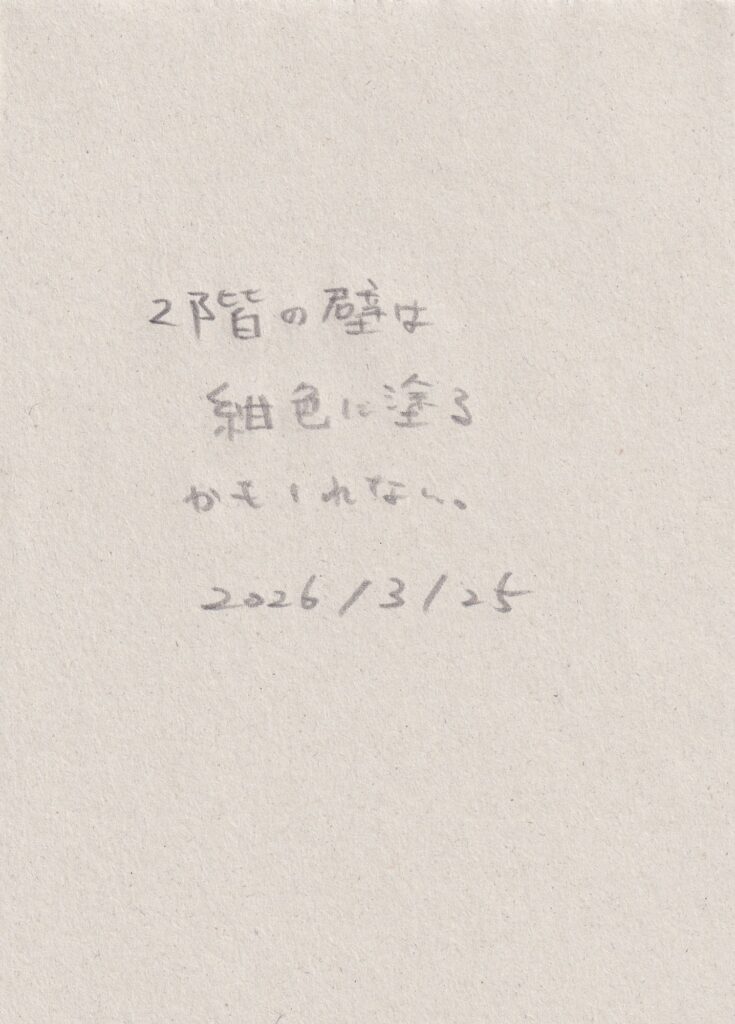 2階の壁は
紺色に塗る
かもしれない。
2026/3/25